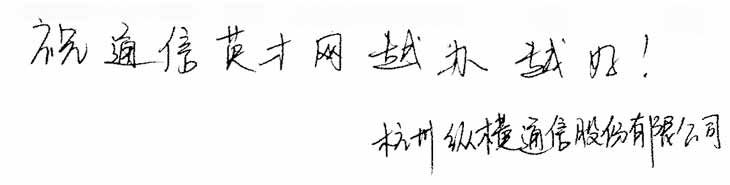 祝通信英才网越办越好!
杭州纵横通信股份有限公司